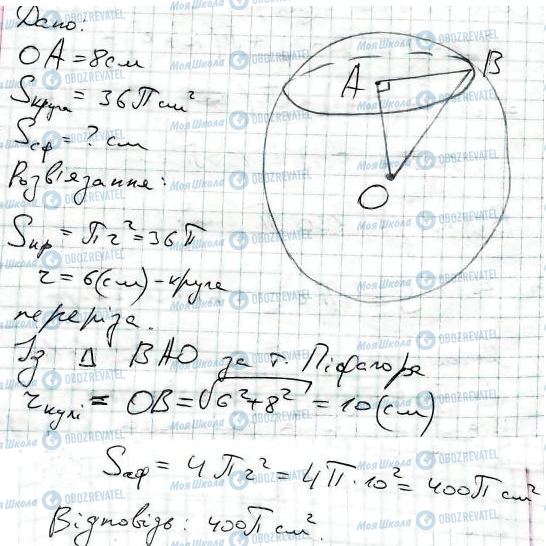 Дано:
OA = 8 см
Sкруга = 36П см²
Sсф = ? см
Розв'язання:
Sкр = Пr² = 36П
r = 6(см) - круга
переріза.
Із Δ BAO за т. Піфагора
rкулі = OB = √6²+8² = 10(см)
Sсф = 4Пr² = 4П·10² = 400П см²
Відповідь: 400П см².
A
B
O
Моя Школа
OBOZREVATEL